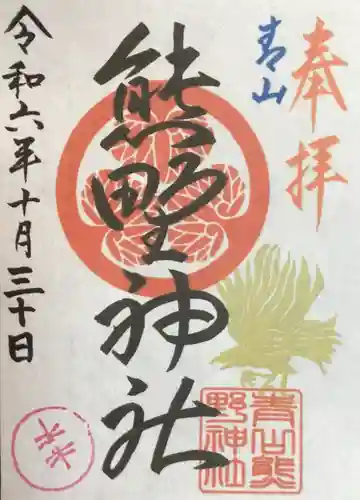 奉拝
青山
熊野神社
令和六年十月三十日
青山熊
野神社